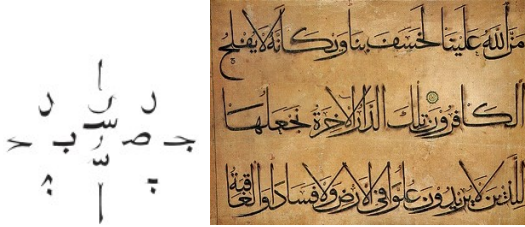 من الله علينا لخسف بنا ويكأنه لا يفلح
الكافرون تلك الدار الآخرة نجعلها
للذين لا يريدون علوا في الأرض ولا فسادا والعاقبة